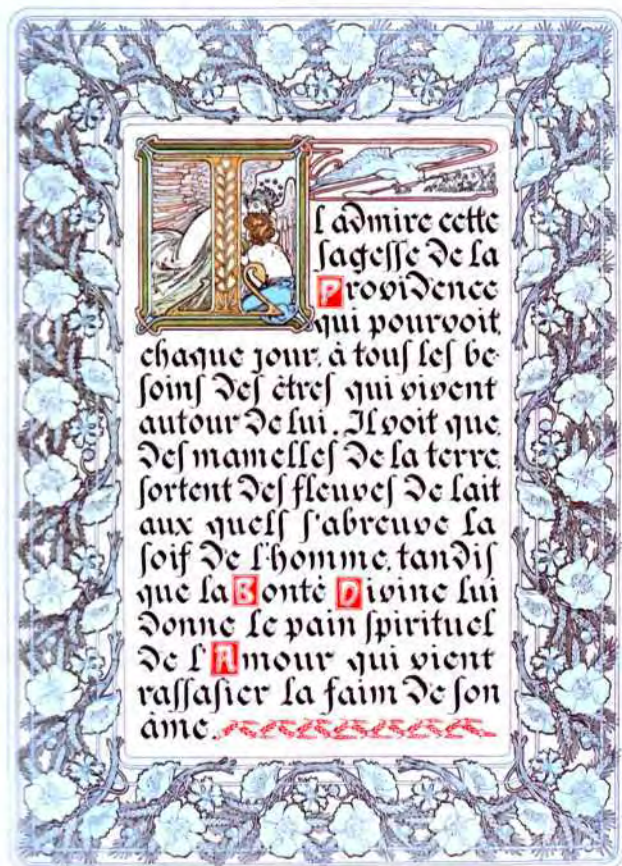 Il admire cette
sagesse de la
Providence
qui pourvoit
chaque jour, à tous les be-
soins des êtres qui vivent
autour de lui. Il voit que,
des mamelles de la terre,
sortent des fleuves de lait
aux quels s'abreuve la
soif de l'homme, tandis
que la Bonté Divine lui
donne le pain spirituel
de l'Amour qui vient
rassasier la faim de son
âme.